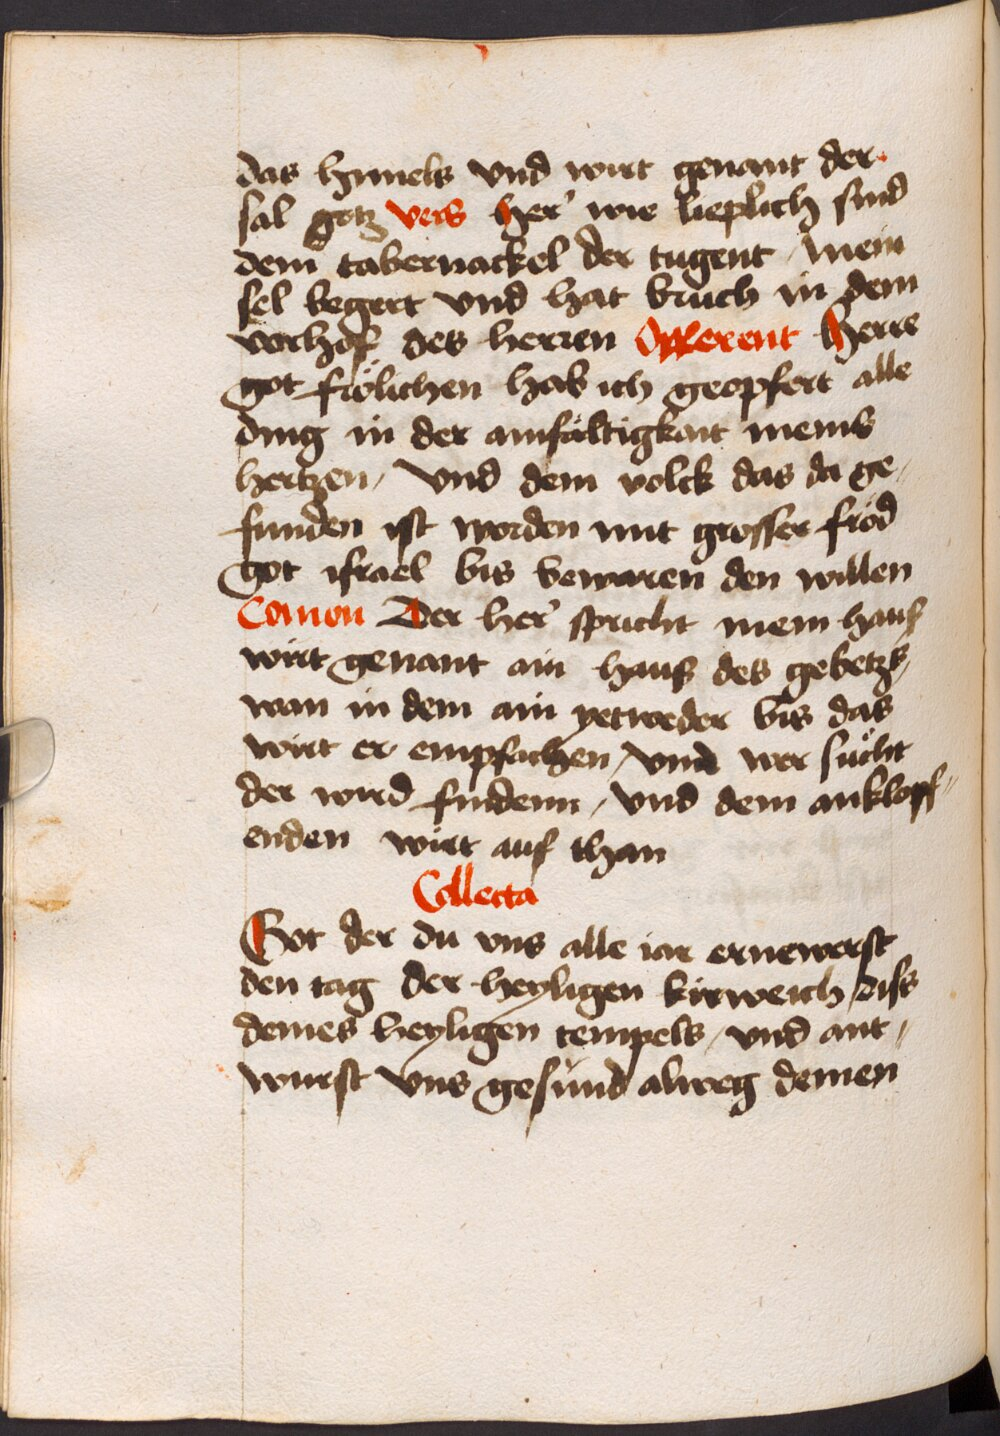 das himels vnd wirt genant der
sal gotz vers her' wie lieplich sind
dein tabernackel der tugent / mein
sel begert vnd hat bruch in dem
vorhof des herren Offerent Herre
got frölichen hab ich geopfert alle
ding in der ainfältigkait meins
hertzen / vnd dem volck das da ge-
funden ist worden mit grosser fröd
got israel bis bewaren den willen
Comon Der her' spricht mein haus
wirt genant ain haus des gebetzs /
wan in dem ain yetweder bis das
wirt er empfachen / vnd wer sücht
der wird findenn / vnd dem anklopf-
enden wirt auf than
Collecta
Got der du vns alle iar ernewerst
den tag der heyligen kirweich diss
deines heyligen tempels / vnd ant-
wurst vns gesund alweg deinen